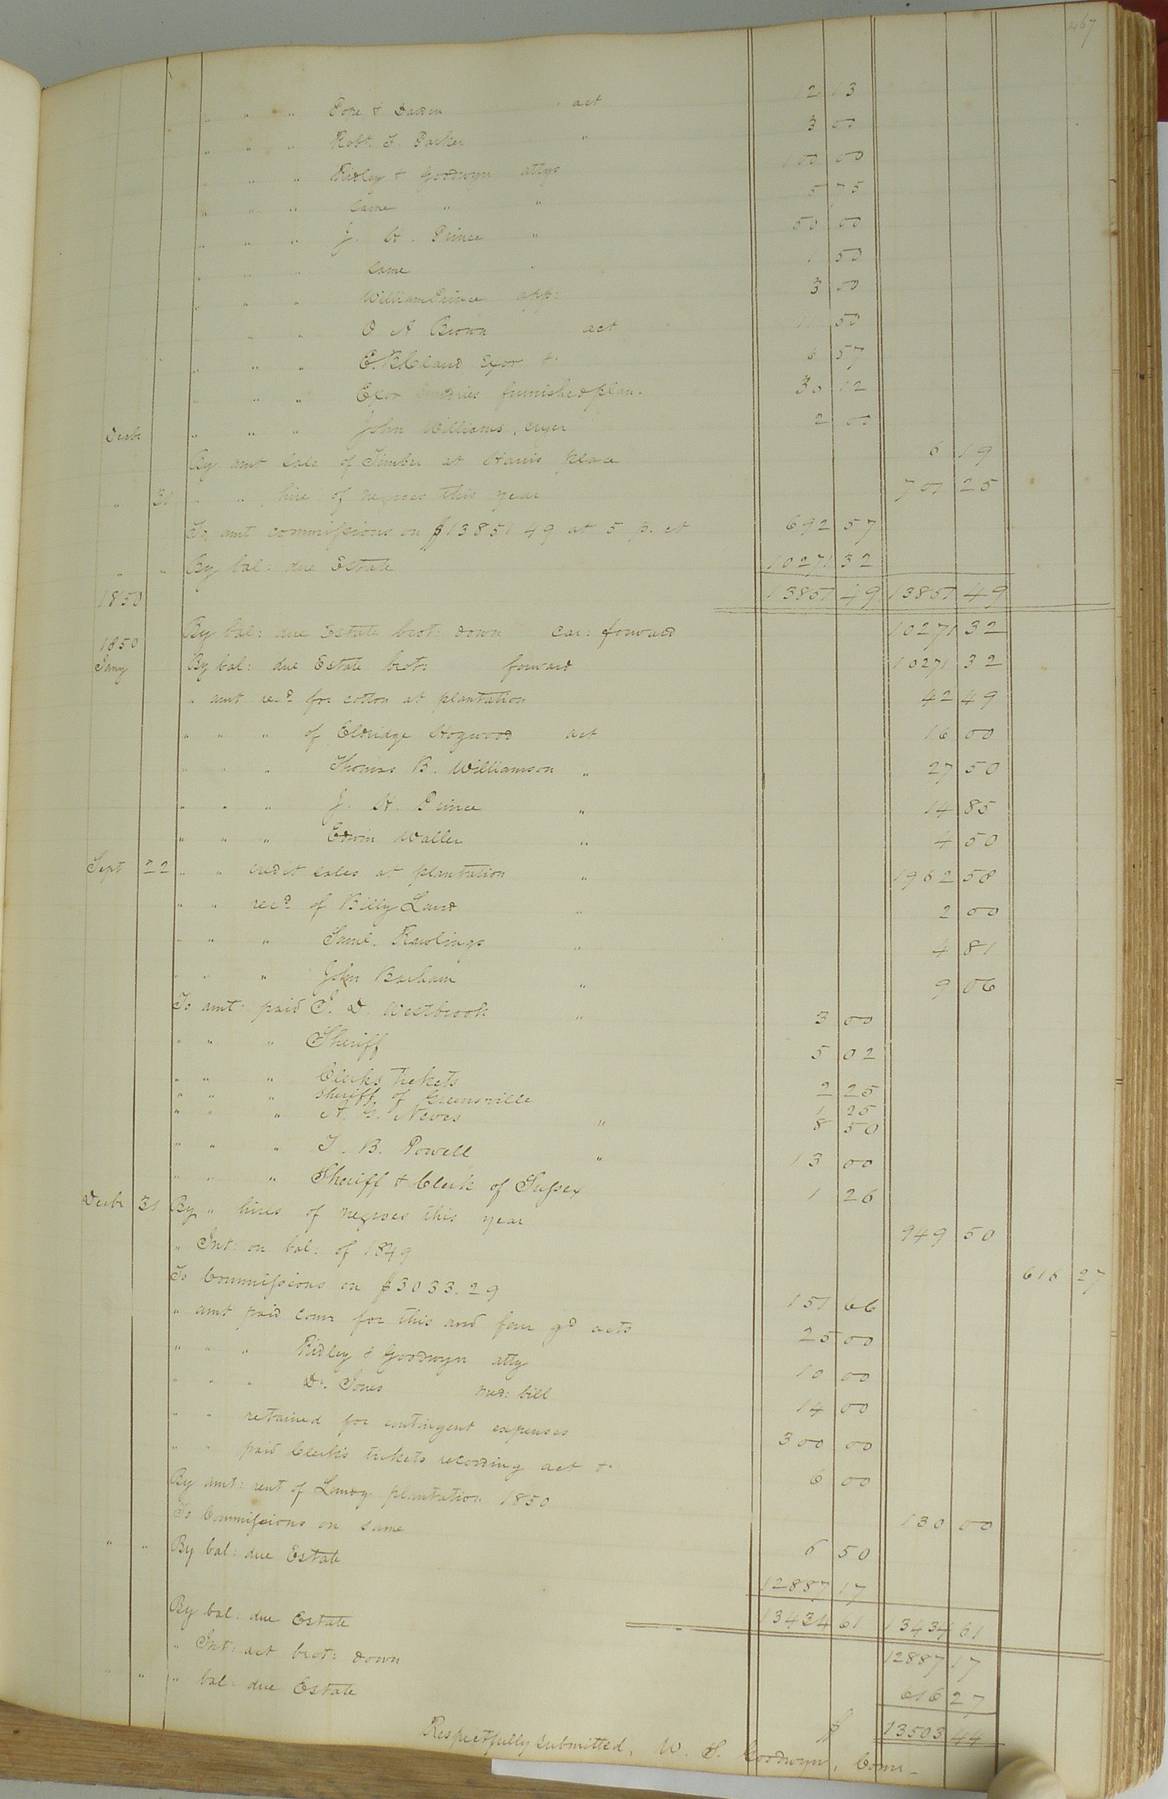 467
" " " Pope & Daren act 2 13
" " " Robt. T. Parker " 3 00
" " " Ridley & Goodwyn attys 100 00
" " " same " " 5 75
" " " J. H. Prince " 50 00
" " " same " 1 50
" " " William Prince app: 3 00
" " " O A Brown act 1 50
" " " E. B. Claud Exor &c 57
" " " Exor sundries furnished plan. 30 12
" " " John Williams, cryer 2 00
Decbr By amt sale of Timber at Harris place 6 19
" 31 " " hire of negroes this year 701 25
To amt commissions on $13851 49 at 5 p. ct 692 57
" " By bal: due Estate 10271 32
1850 13851 49 13851 49
By bal: due Estate brot: down car: forward 10271 32
1850
Jany By bal: due Estate brot: forward 10271 32
" amt recd for cotton at plantation 42 49
" " " of Eldridge Hogwood act 16 00
" " " Thomas B. Williamson " 27 50
" " " J. H. Prince " 14 85
" " " Edwin Waller " 4 50
Sept 22 " " credit sales at plantation " 1962 58
" " recd of Billy Laud " 2 00
" " " Saml. Rawlings " 4 81
" " " John Barham " 9 06
To amt: paid T. D. Westbrook " 3 00
" " " Sheriff 5 02
" " " Clerks tickets 2 25
" " " Sheriff of Greensville 1 25
" " " A. G. Neves " 8 50
" " " T. B. Powell " 13 00
" " " Sheriff & Clerk of Sussex 1 26
Decbr 31 By " hires of negroes this year 949 50
" Int: on bal: of 1849 616 27
To Commissions on $3033.29 151 66
" amt paid comr for this and four gd acts 25 00
" " " Ridley & Goodwyn atty 10 00
" " " Dr. Jones med: bill 14 00
" " retained for contingent expenses 300 00
" " paid Clerk's tickets recording act &c 6 00
By amt: rent of Landg plantation 1850 130 00
To Commissions on same 6 50
" " By bal: due Estate 12887 17
13434 61 13434 61
By bal: due Estate 12887 17
" Int: act brot: down 616 27
" " " bal: due Estate $ 13503 44
Respectfully submitted, W. S. Goodwyn, Comr